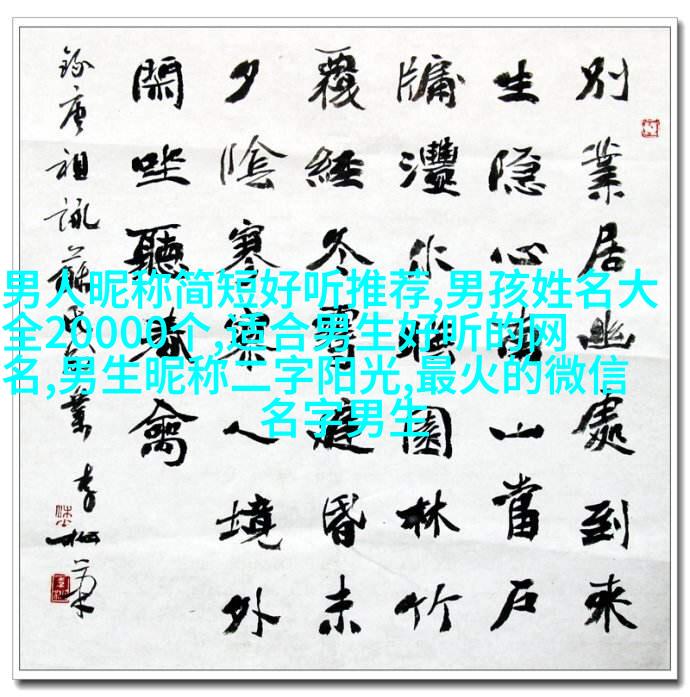 別業居幽處到来
生隐心南山當戶
牖灃水映園林竹
覆經冬雪庭昏未
夕陰寥寥人境外
閑坐聽春禽
錄唐祖詠蘇氏别業
男人昵称简短好听推荐,男孩姓名大
全20000个,适合男生好听的网
名,男生昵称二字阳光,最火的微信
名字男生